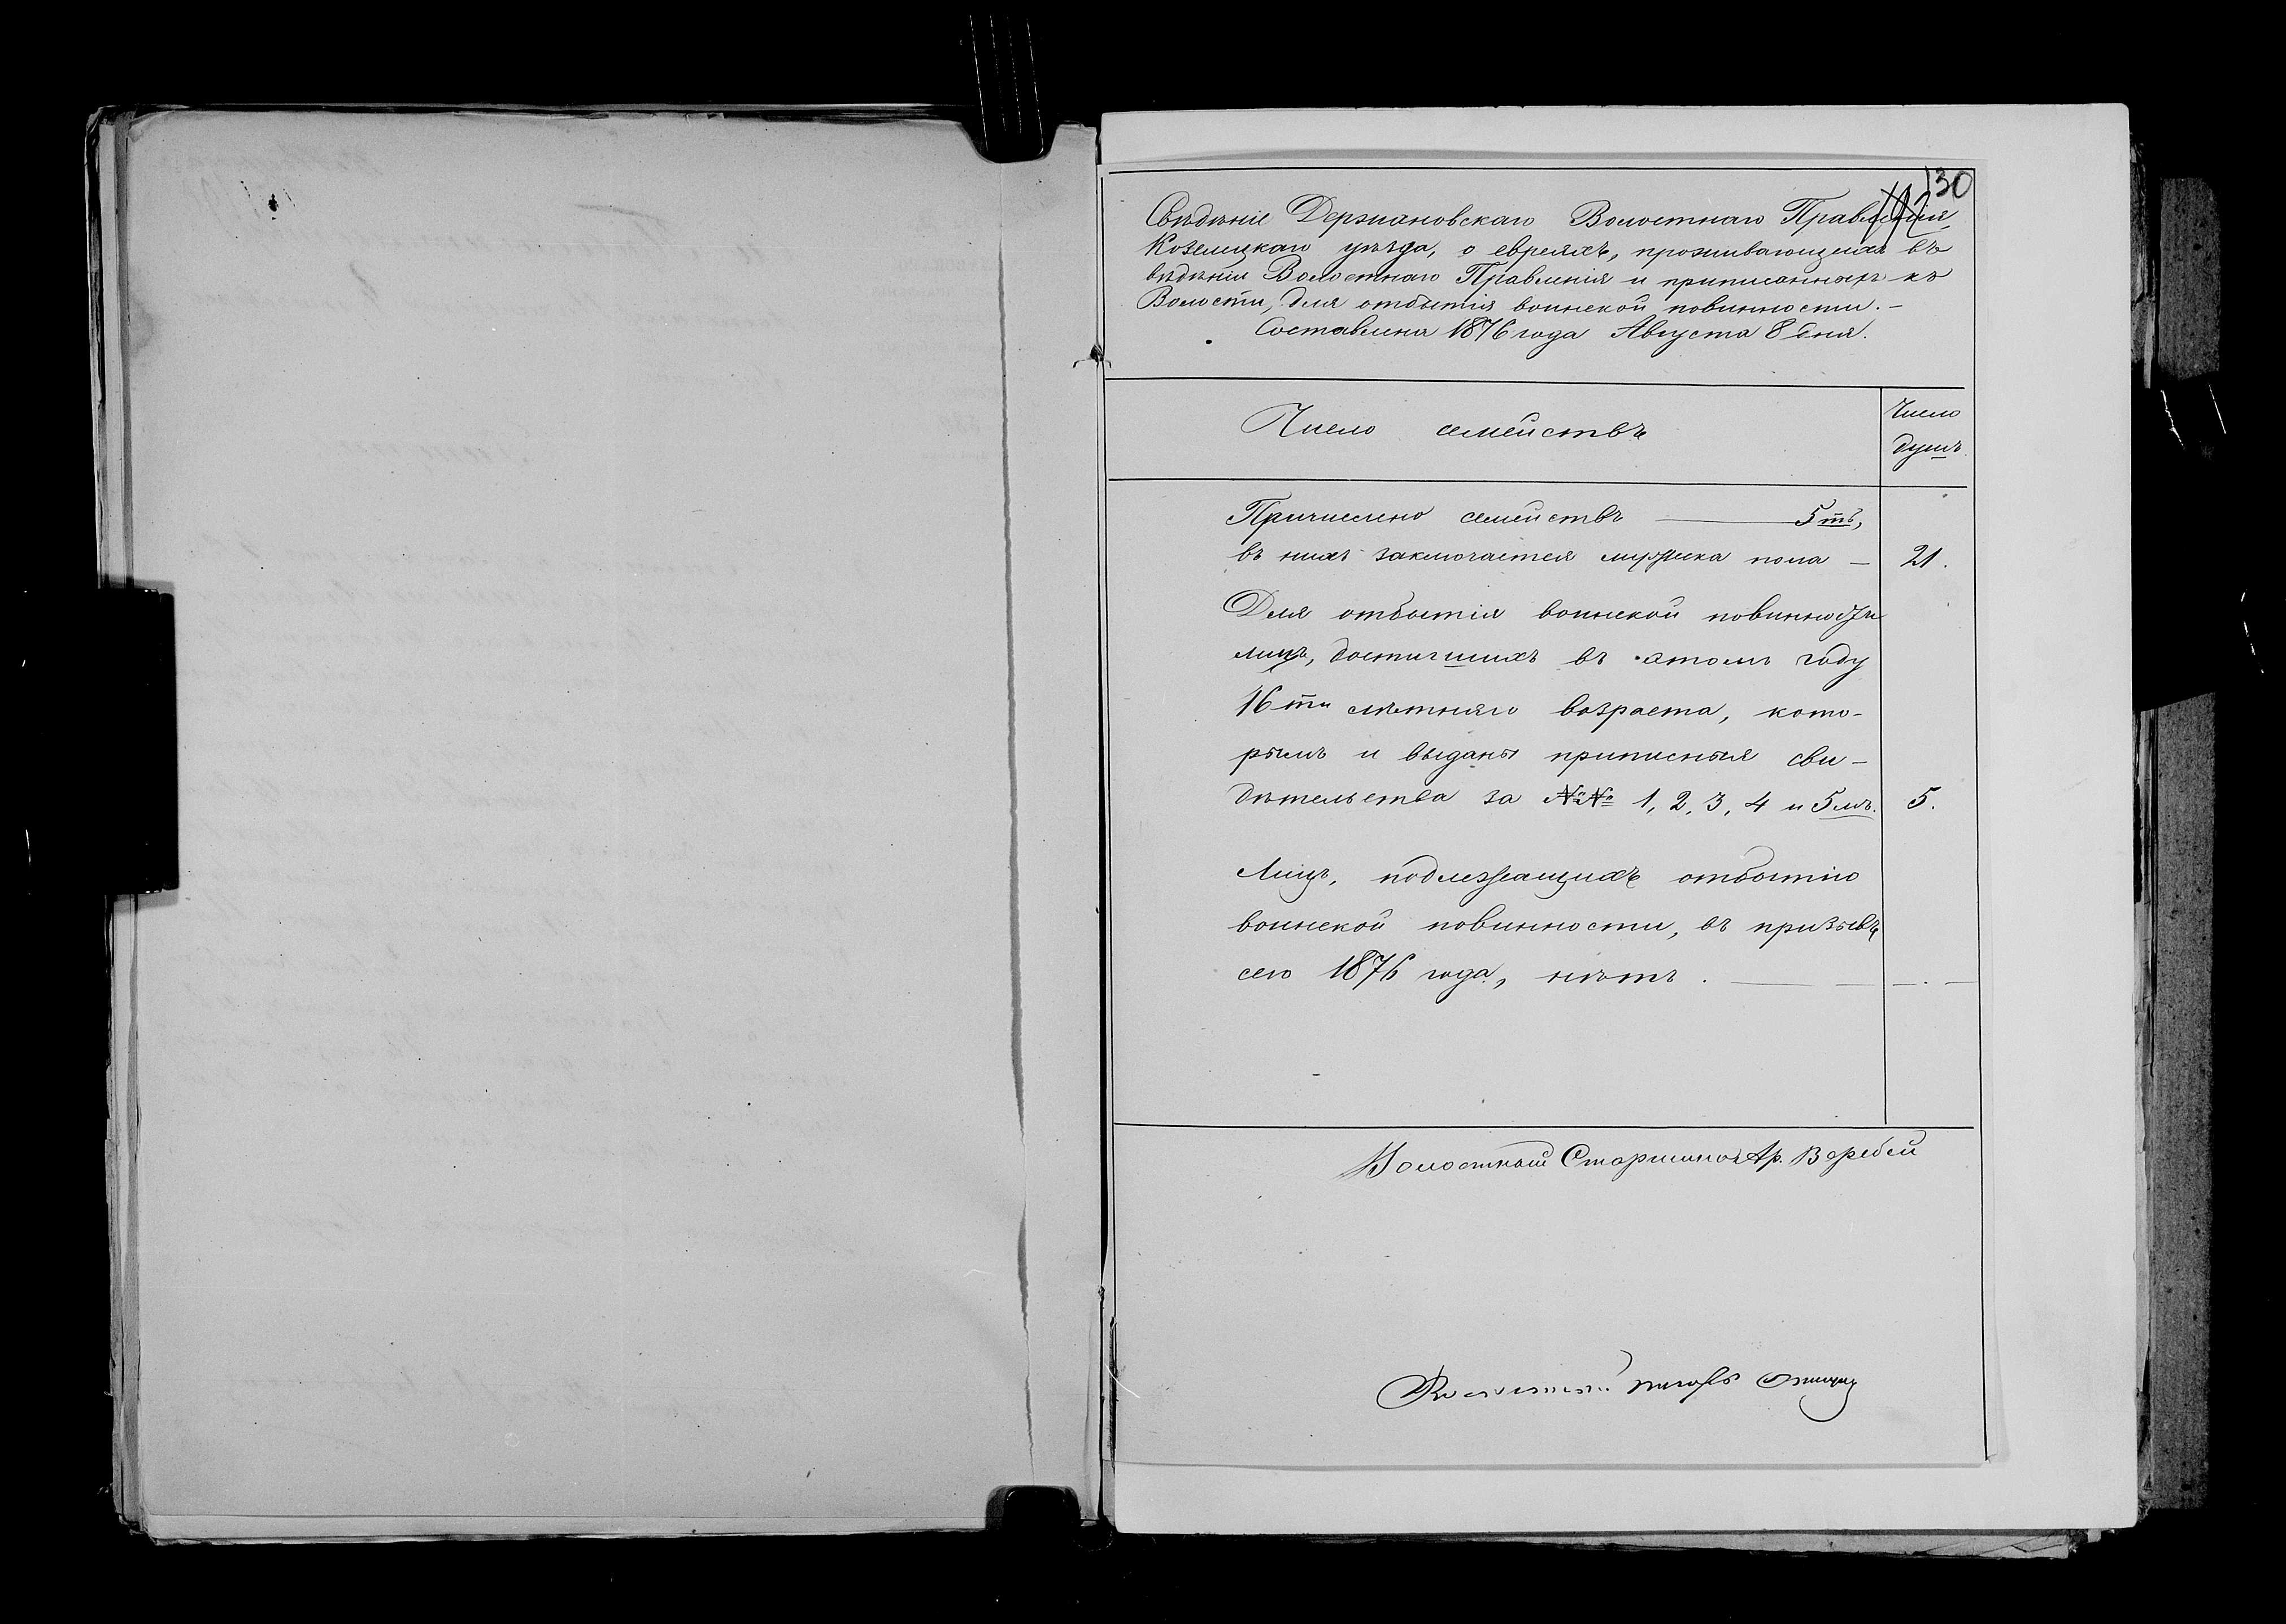 130
Свѣдѣніе Держановскаго Волостнаго Правленія,
Козелецкаго уѣзда, о евреяхъ, проживающихъ въ
вѣдѣніи Волостнаго Правленія и приписанныхъ къ
Волости, для отбытія воинской повинности. –
Составлена 1876 года Августа 8 дня.
Число семействъ
Число
душъ.
Причислено семействъ — 5ть,
въ нихъ заключается мужска пола — 21.
Для отбытія воинской повинности
лицъ, достигшихъ въ этомъ году
16ти лѣтняго возраста, кото-
рымъ и выданы приписныя сви-
дѣтельства за №№ 1, 2, 3, 4 и 5мъ. 5.
Лицъ, подлежащихъ отбытію
воинской повинности, въ призывѣ
сего 1876 года, нѣтъ. — — . —
Волостный Старшина Ар. Воребей
Волостной писарь